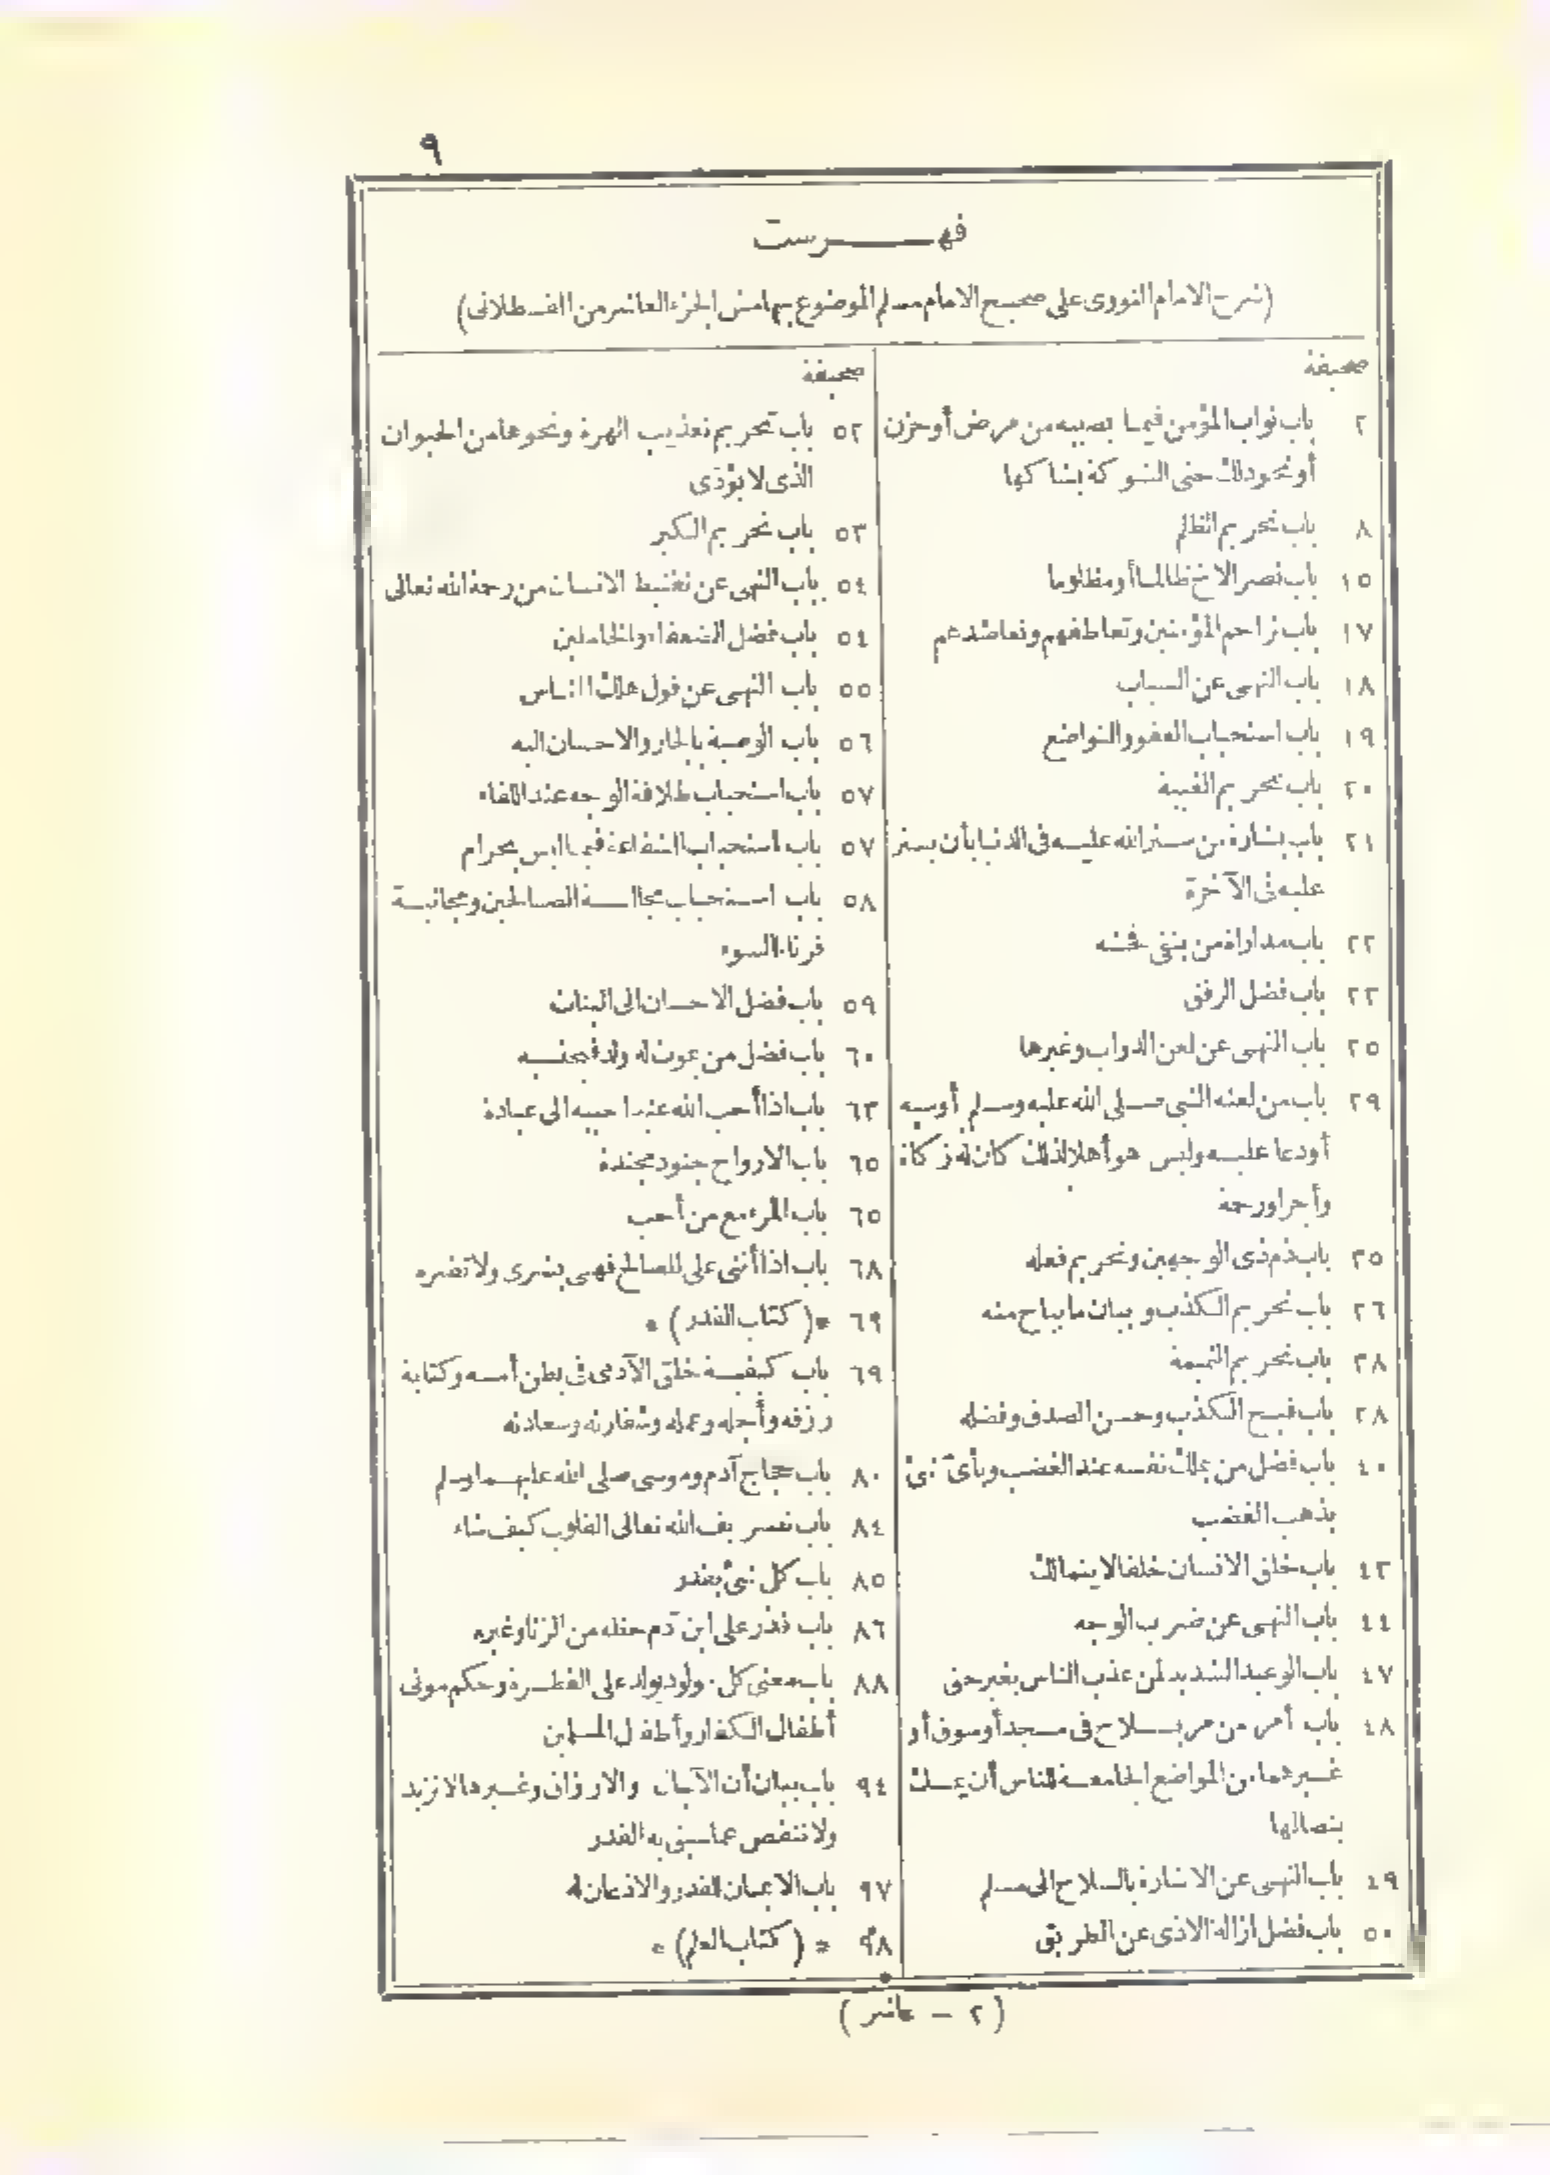 ٩
فهـــرست
(شرح الامام النووى على صحيح الامام مسلم الموضوع بهامش الجزء العاشر من القسطلانى)
صحيفة
٢ باب ثواب المؤمن فيما يصيبه من مرض أو حزن
أو نحو ذلك حتى الشوكة يشاكها
٨ باب تحريم الظلم
١٥ باب نصر الاخ ظالما أو مظلوما
١٧ باب تراحم المؤمنين وتعاطفهم وتعاضدهم
١٨ باب النهى عن السباب
١٩ باب استحباب العفو والتواضع
٢٠ باب تحريم الغيبة
٢١ باب بشارة من ستر الله عليه فى الدنيا بأن يستر
عليه فى الآخرة
٢٢ باب مداراة من يتقى فحشه
٢٣ باب فضل الرفق
٢٥ باب النهى عن لعن الدواب وغيرها
٢٩ باب من لعنه النبى صلى الله عليه وسلم أو سبه
أو دعا عليه وليس هو أهلا لذلك كان له زكاة
وأجرا ورحمة
٣٥ باب ذم ذى الوجهين وتحريم فعله
٣٦ باب تحريم الكذب وبيان ما يباح منه
٣٨ باب تحريم النميمة
٣٨ باب قبح الكذب وحسن الصدق وفضله
٤٠ باب فضل من يملك نفسه عند الغضب وبأى شئ
يذهب الغضب
٤٣ باب خلق الانسان خلقا لا يتمالك
٤٤ باب النهى عن ضرب الوجه
٤٧ باب الوعيد الشديد لمن عذب الناس بغير حق
٤٨ باب أمر من مر بسلاح فى مسجد أو سوق أو
غيرهما من المواضع الجامعة للناس أن يمسك
بنصالها
٤٩ باب النهى عن الاشارة بالسلاح الى مسلم
٥٠ باب فضل ازالة الاذى عن الطريق
صحيفة
٥٢ باب تحريم تعذيب الهرة ونحوها من الحيوان
الذى لا يؤذى
٥٣ باب تحريم الكبر
٥٤ باب النهى عن تقنيط الانسان من رحمة الله تعالى
٥٤ باب فضل الضعفاء والخاملين
٥٥ باب النهى عن قول هلك الناس
٥٦ باب الوصية بالجار والاحسان اليه
٥٧ باب استحباب طلاقة الوجه عند اللقاء
٥٧ باب استحباب الشفاعة فيما ليس بحرام
٥٨ باب استحباب مجالسة الصالحين ومجانبة
قرناء السوء
٥٩ باب فضل الاحسان الى البنات
٦٠ باب فضل من يموت له ولد فيحتسبه
٦٣ باب اذا أحب الله عبدا حببه الى عباده
٦٥ باب الارواح جنود مجندة
٦٥ باب المرء مع من أحب
٦٨ باب اذا أثنى على الصالح فهى بشرى ولا تضره
٦٩ *(كتاب القدر)*
٦٩ باب كيفية خلق الآدمى فى بطن أمه وكتابة
رزقه وأجله وعمله وشقاوته وسعادته
٨٠ باب حجاج آدم وموسى صلى الله عليهما وسلم
٨٤ باب تصريف الله تعالى القلوب كيف شاء
٨٥ باب كل شئ بقدر
٨٦ باب قدر على ابن آدم حظه من الزنا وغيره
٨٨ باب معنى كل مولود يولد على الفطرة وحكم موتى
أطفال الكفار وأطفال المسلمين
٩٤ باب بيان أن الآجال والارزاق وغيرها لا تزيد
ولا تنقص عما سبق به القدر
٩٧ باب الايمان للقدر والاذعان له
٩٨ *(كتاب العلم)*
(٢ - عاشر)